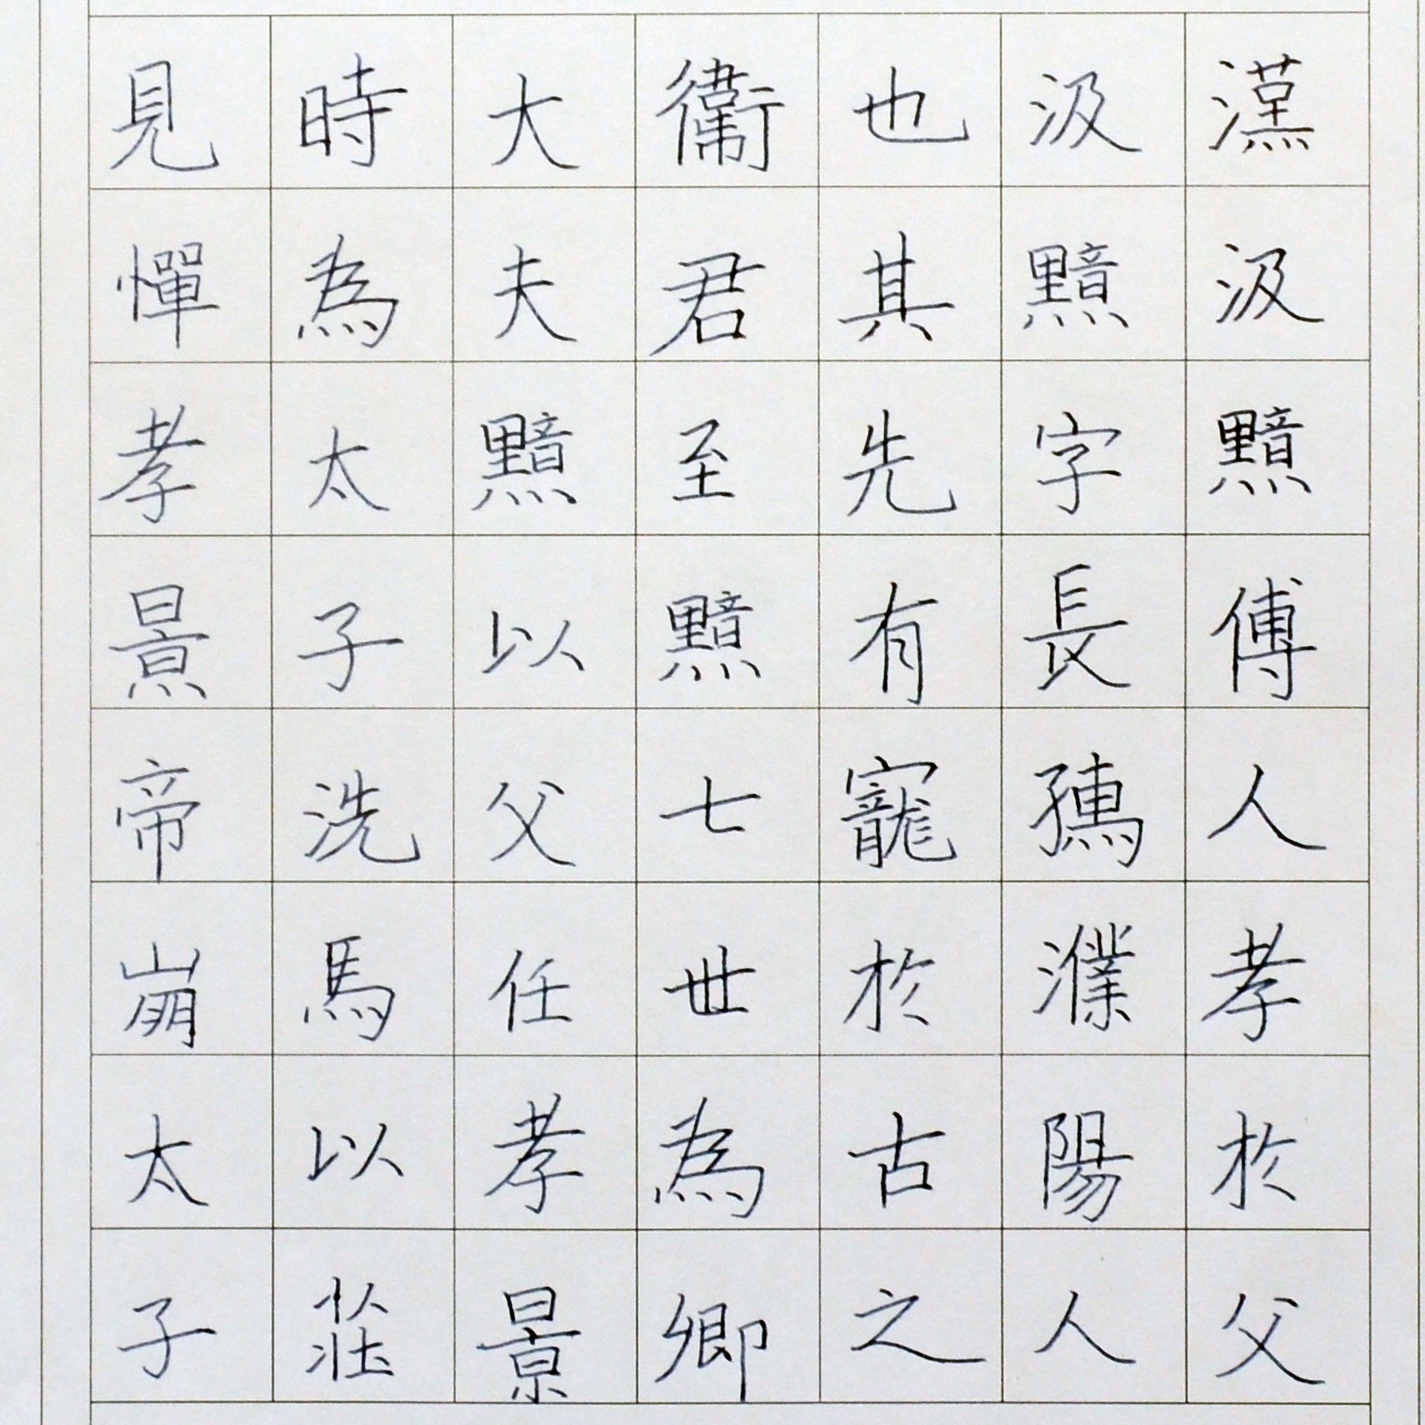 漢汲黯傅人孝於父
汲黯字長孺濮陽人
也其先有寵於古之
衞君至黯七世為卿
大夫黯以父任孝景
時為太子洗馬以莊
見憚孝景帝崩太子